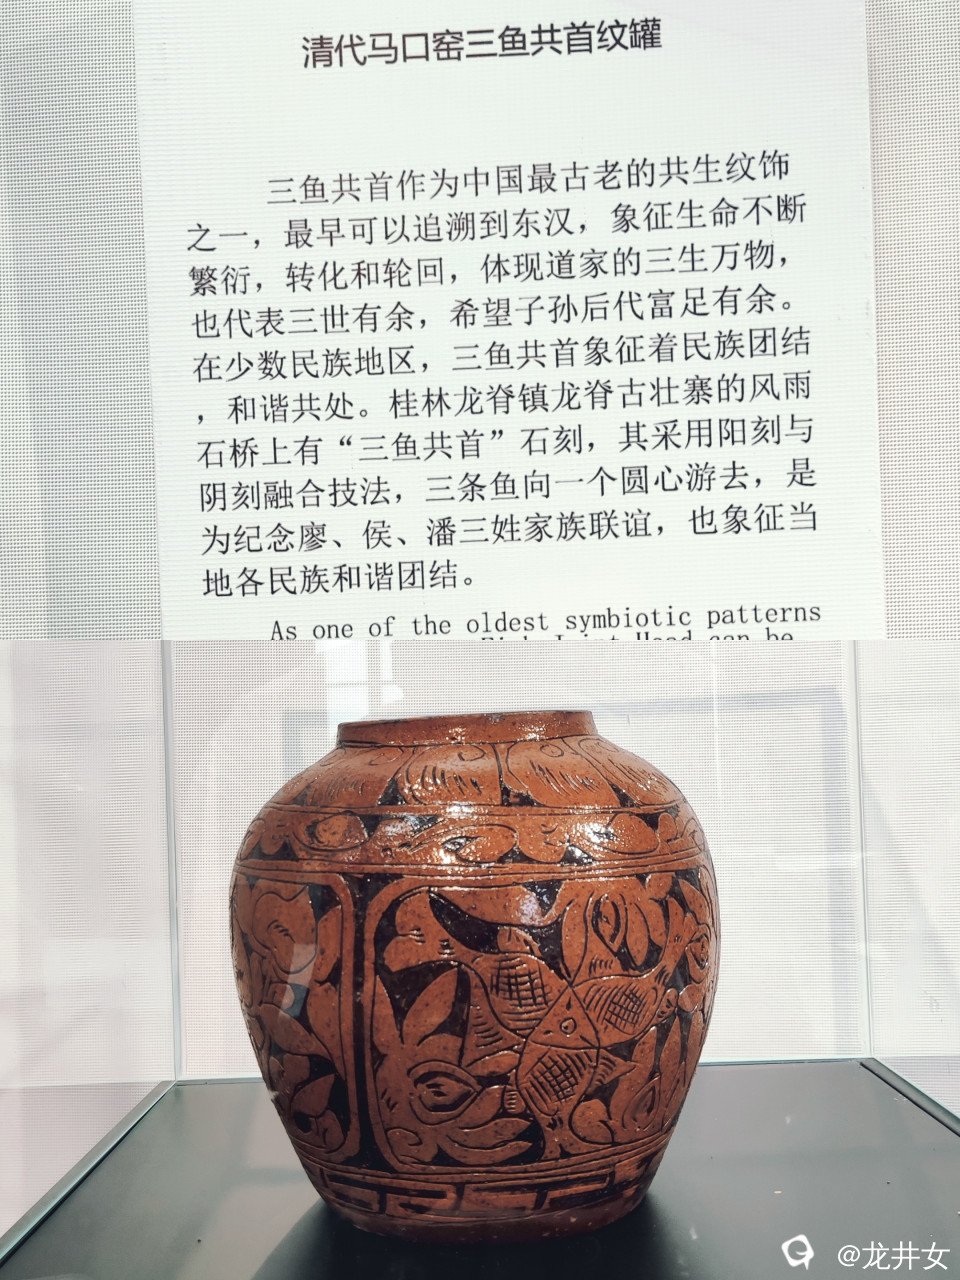 清代马口窑三鱼共首纹罐
三鱼共首作为中国最古老的共生纹饰
之一，最早可以追溯到东汉，象征生命不断
繁衍，转化和轮回，体现道家的三生万物，
也代表三世有余，希望子孙后代富足有余。
在少数民族地区，三鱼共首象征着民族团结
，和谐共处。桂林龙脊镇龙脊古壮寨的风雨
石桥上有“三鱼共首”石刻，其采用阳刻与
阴刻融合技法，三条鱼向一个圆心游去，是
为纪念廖、侯、潘三姓家族联谊，也象征当
地各民族和谐团结。
As one of the oldest symbiotic patterns
Head can be
@龙井女